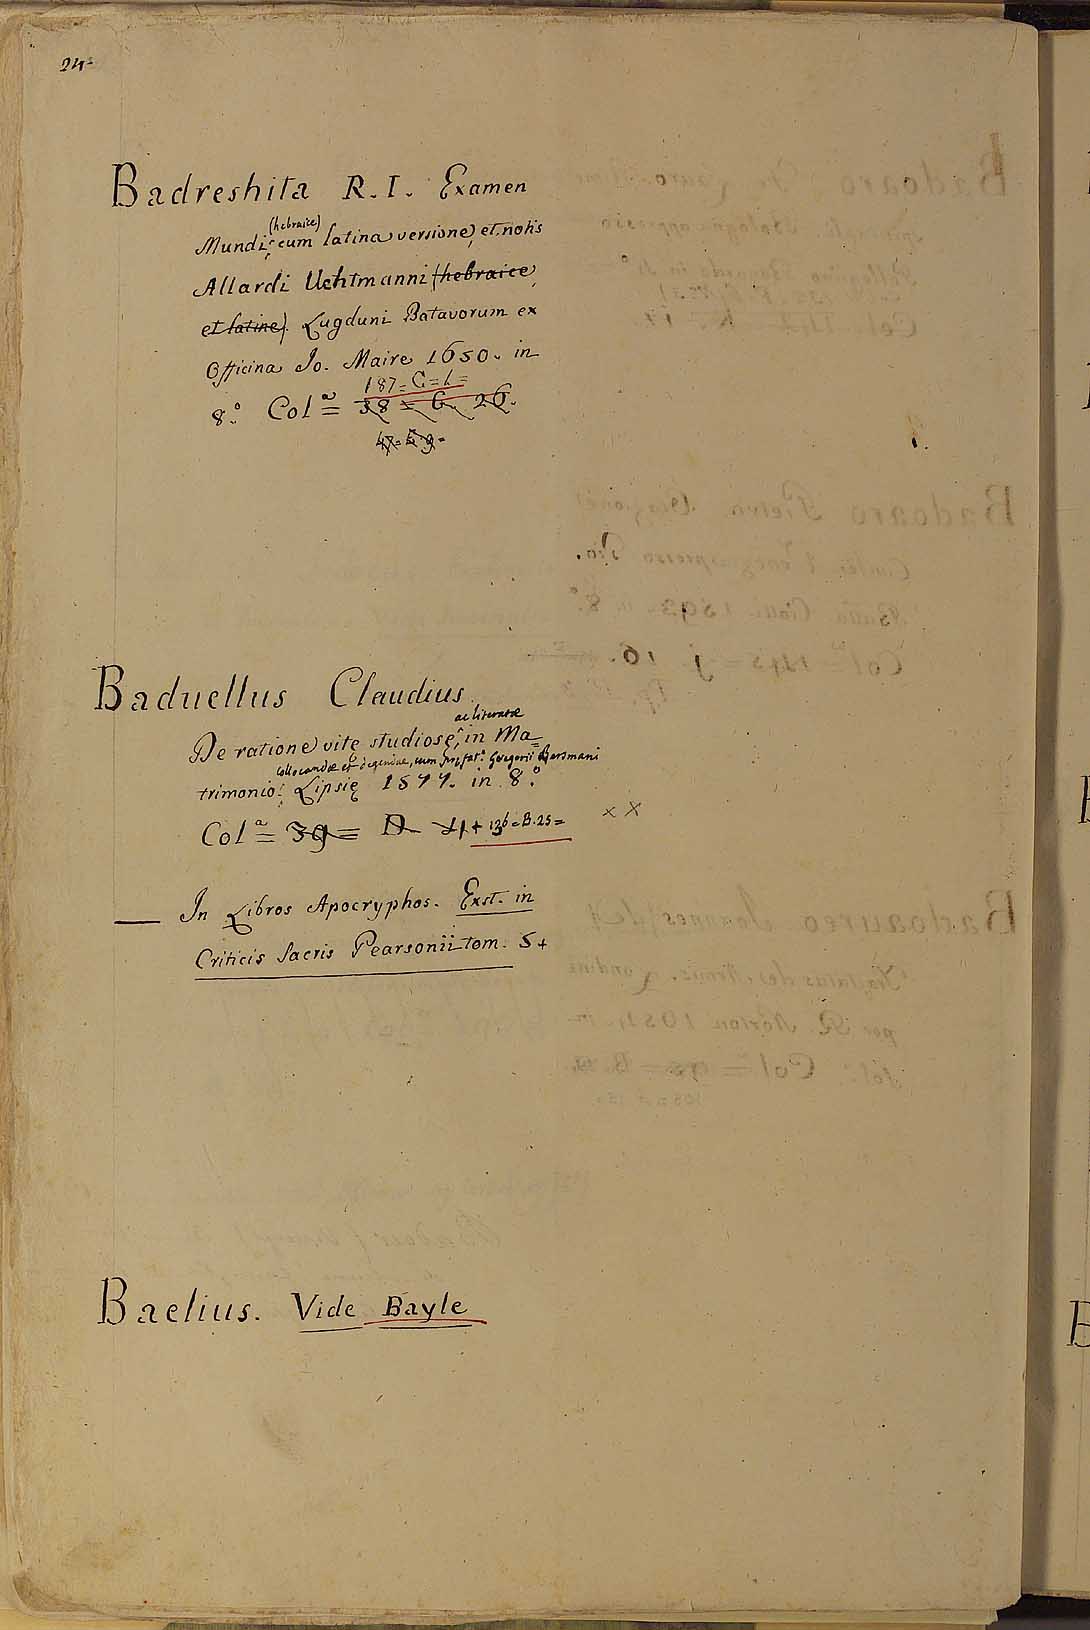 24
Badreshita R. I. Examen
(hebraice)
Mundi, cum latina versione, et notis
Allardi Uchtmanni (hebraice
et latine). Lugduni Batavorum ex
Officina Jo. Maire 1650. in
187= G=1=
8.° Col.ª = 38 = G. 26.
47= 9=
Baduellus Claudius
ac literatæ
De ratione vitę studiosę, in Ma=
collocandæ et degendæ, cum præfat.e Gregorii Bersmani
trimonio. Lipsię 1577. in 8.°
Col.ª = 39 = D- 41+ 136=B.25= x x
— In Libros Apocryphos. Exst. in
Criticis Sacris Pearsonii tom. 5+
Baelius. Vide Bayle